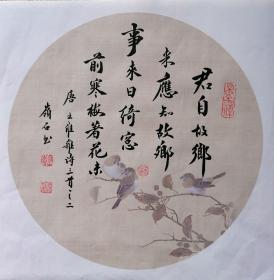 君自故鄉
来應知故鄉
事来日綺窓
前寒梅著花未
唐王維雜诗三首之二
嶺石书